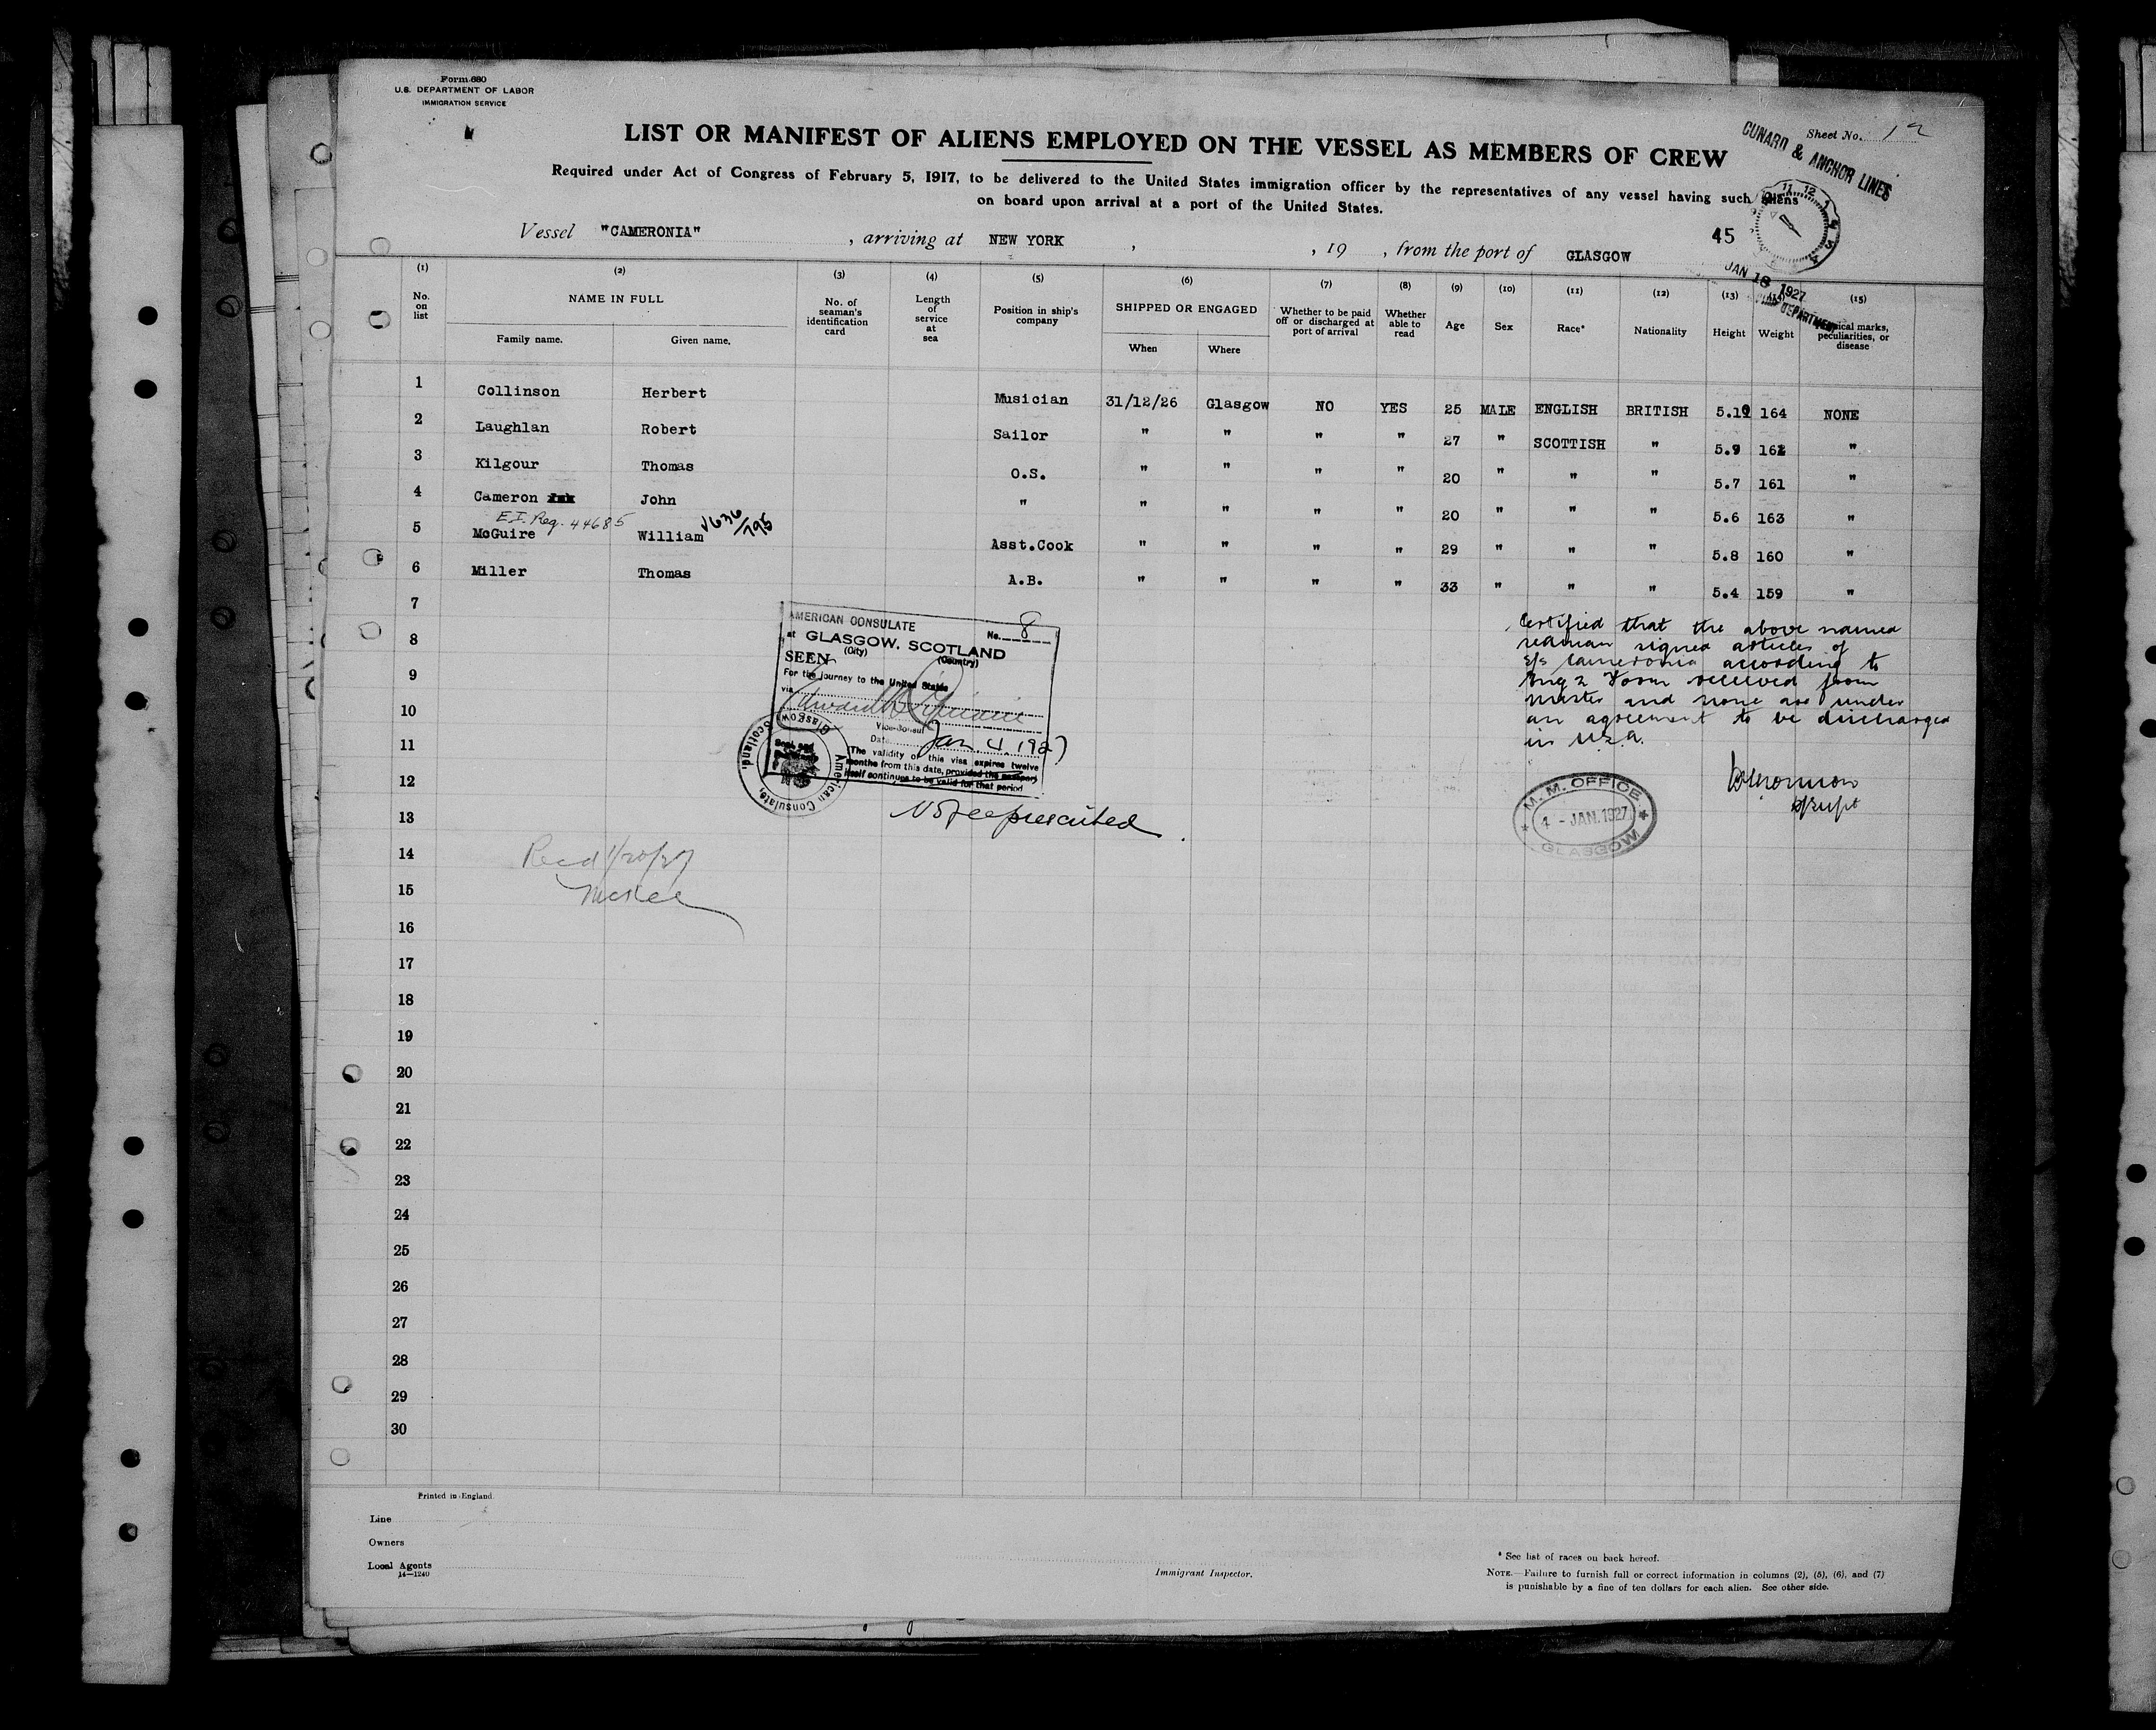 Form 680
U.S. DEPARTMENT OF LABOR
IMMIGRATION SERVICE
Sheet No. 12
CUNARD & ANCHOR LINES
LIST OR MANIFEST OF ALIENS EMPLOYED ON THE VESSEL AS MEMBERS OF CREW
Required under Act of Congress of February 5, 1917, to be delivered to the United States immigration officer by the representatives of any vessel having such aliens
on board upon arrival at a port of the United States.
Vessel "CAMERONIA" , arriving at NEW YORK , , 19 , from the port of GLASGOW
45
11 12 1
JAN 18 1927
DEPARTMENT
(1) (2) (3) (4) (5) (6) (7) (8) (9) (10) (11) (12) (13) (15)
No. on list NAME IN FULL No. of seaman's identification card Length of service at sea Position in ship's company SHIPPED OR ENGAGED Whether to be paid off or discharged at port of arrival Whether able to read Age Sex Race* Nationality Height Weight marks, peculiarities, or disease
Family name. Given name. When Where
1 Collinson Herbert Musician 31/12/26 Glasgow NO YES 25 MALE ENGLISH BRITISH 164 NONE
2 Laughlan Robert Sailor " " " " 27 " SCOTTISH " 5.9 "
3 Kilgour Thomas O.S. " " " " 20 " " " 5.7 161 "
4 Cameron John " " " " " 20 " " " 5.6 163 "
E.I. Reg. 44685 636/795
5 McGuire William Asst.Cook " " " " 29 " " " 5.8 160 "
6 Miller Thomas A.B. " " " " 33 " " " 5.4 159 "
7
8
9
10
11
12
13
14
15
16
17
18
19
20
21
22
23
24
25
26
27
28
29
30
AMERICAN CONSULATE
No. 8
at GLASGOW, SCOTLAND
(City) (Country)
SEEN
For the journey to the United States
via
Vice-Consul
Date Jan. 4, 1927
(The validity of this visa expires twelve
months from this date, provided the passport
itself continues to be valid for that period
American Consulate, Glasgow Scotland.
No fee prescribed.
Certified that the above named
seaman signed articles of
s/s Cameronia according to
Eng 2 Form received from
master and none are under
an agreement to be discharged
in U.S.A.
Supt
M. M. OFFICE
4 - JAN. 1927
GLASGOW
Recd 1/20/27
McKee
Printed in England.
Line
Owners
Local Agents
14—1240
Immigrant Inspector.
* See list of races on back hereof.
NOTE.—Failure to furnish full or correct information in columns (2), (5), (6), and (7)
is punishable by a fine of ten dollars for each alien. See other side.